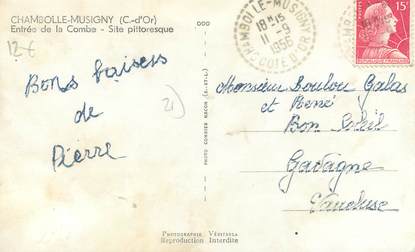 CHAMBOLLE-MUSIGNY (C.-d'Or)
Entrée de la Combe - Site pittoresque
12€
Bons baisers
de
Pierre
21
PHOTO COMBIER MACON (S.-ET-L.)
CHAMBOLLE-MUSIGNY
18H15
11-9
1956
COTE D'OR
POSTES
15F
RÉPUBLIQUE FRANÇAISE
Monsieur Loulou Galas
et René
Bon Soleil
Gadagne
Vaucluse
Photographie Véritable
Reproduction Interdite